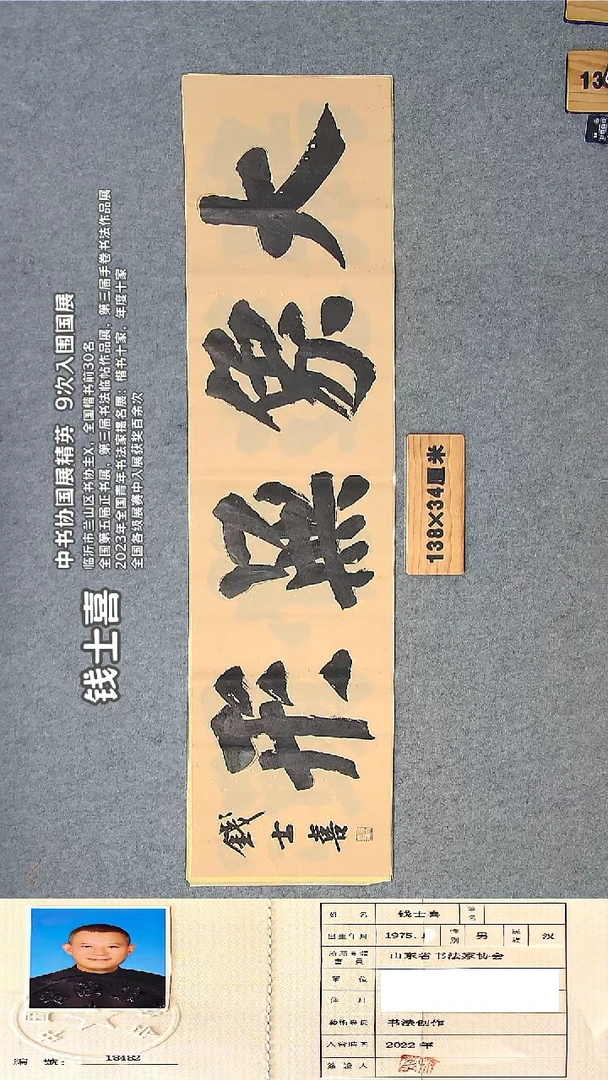 钱士喜
中书协国展精英 9次入围国展
临沂市兰山区书协主X,全国楷书前30名
全国第五届正书展、第三届书法临帖作品展、第三届手卷书法作品展
2023年全国青年书法家提名展:楷书十家、年度十家
全国各级展赛中入展获奖百余次
大象無形
錢士喜
138×34厘米
13
编 号: 18482
姓 名 钱士喜
出生年月 1975.1 男 汉
山东省书法家协会
单 位
书法创作
2022 年